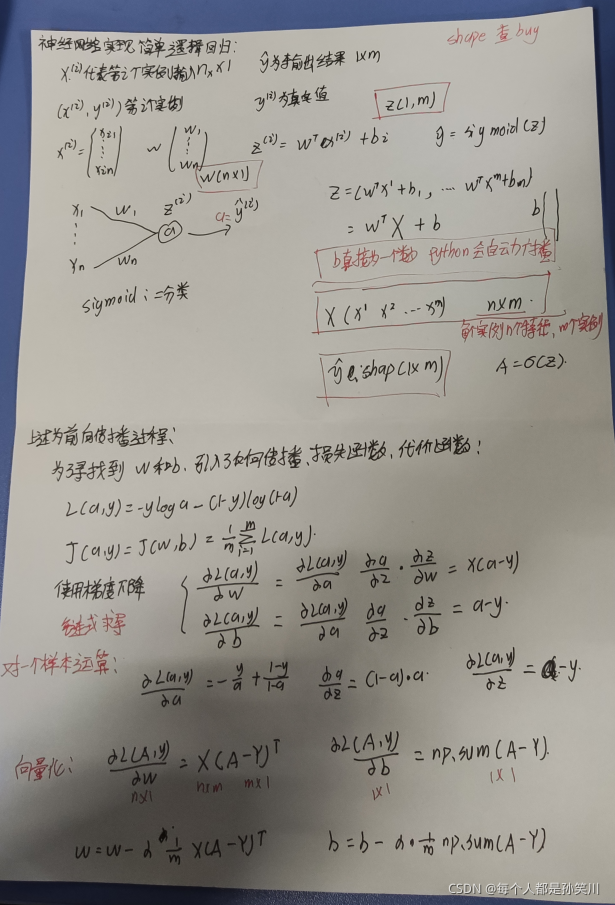 神经网络实现简单逻辑回归:
shape 查 buy
x⁽ⁱ⁾代表第i个实例输入 nₓ×1
ŷ为输出结果 1×m
(x⁽ⁱ⁾, y⁽ⁱ⁾) 第i个实例
y⁽ⁱ⁾为真实值
z(1,m)
x⁽ⁱ⁾ = (xᵢ₁ ⋮ xᵢn) w (w₁ ⋮ wn)
z⁽ⁱ⁾ = wᵀx⁽ⁱ⁾ + bi
ŷ = sigmoid(z)
w(n×1)
x₁ w₁ z⁽ⁱ⁾
a
a = ŷ⁽ⁱ⁾
xn wn
sigmoid: 二分类
z = (wᵀx¹+b₁, … wᵀxᵐ+bm)
= wᵀX + b
b
b直接为一个数 python会自动广播
X (x¹ x² … xᵐ) n×m.
每个实例n个特征, m个实例
ŷ.shap(1×m)
A = σ(z).
上述为前向传播过程:
为了寻找到 w和b, 引入了反向传播、损失函数、代价函数:
L(a,y) = -yloga - (1-y)log(1-a)
J(a,y) = J(w,b) = 1/m Σᵢ₌₁ᵐ L(a,y).
使用梯度下降
∂L(a,y)/∂w = ∂L(a,y)/∂a ∂a/∂z · ∂z/∂w = x(a-y)
链式求导
∂L(a,y)/∂b = ∂L(a,y)/∂a ∂a/∂z · ∂z/∂b = a-y.
对一个样本运算:
∂L(a,y)/∂a = -y/a + 1-y/1-a
∂a/∂z = (1-a)·a
∂L(a,y)/∂z = a-y.
向量化:
∂L(A,y)/∂w = X(A-Y)ᵀ
n×1 n×m m×1
∂L(A,y)/∂b = np.sum(A-Y).
1×1 1×1
w = w - α · 1/m X(A-Y)ᵀ
b = b - α · 1/m np.sum(A-Y)
CSDN @每个人都是孙笑川